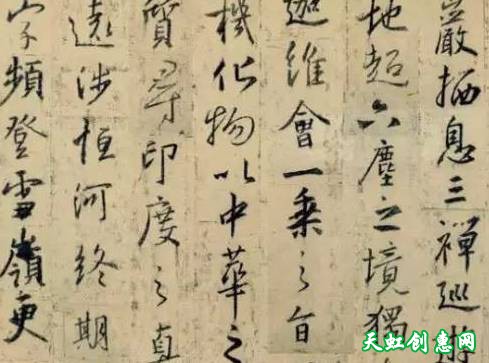 巖栖息三禪巡
地超六塵之境獨
迦維會一乘之旨
機化物以中華之
質尋印度之真
遠涉恒河終期
字頻登雪嶺更
天虹创惠网